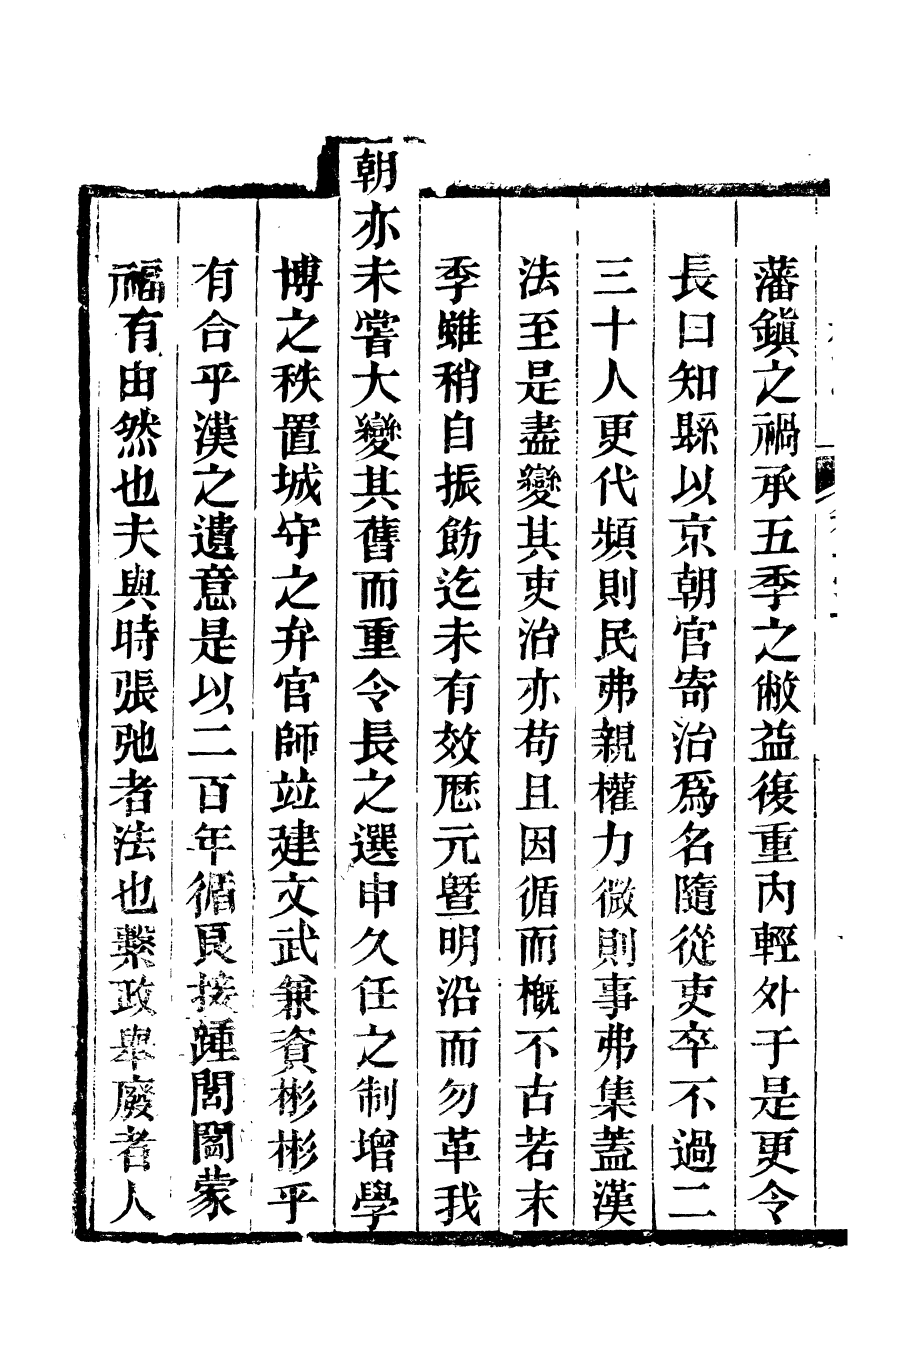 藩鎮之禍承五季之敝益復重內輕外于是更令
長曰知縣以京朝官寄治爲名隨從吏卒不過二
三十人更代頻則民弗親權力微則事弗集蓋漢
法至是盡變其吏治亦苟且因循而槪不古若末
季雖稍自振飭迄未有效歴元暨明沿而勿革我
朝亦未嘗大變其舊而重令長之選申久任之制增學
博之秩置城守之弁官師竝建文武兼資彬彬乎
有合乎漢之遺意是以二百年循良接踵閭閻蒙
福有由然也夫與時張弛者法也繫政舉廢者人